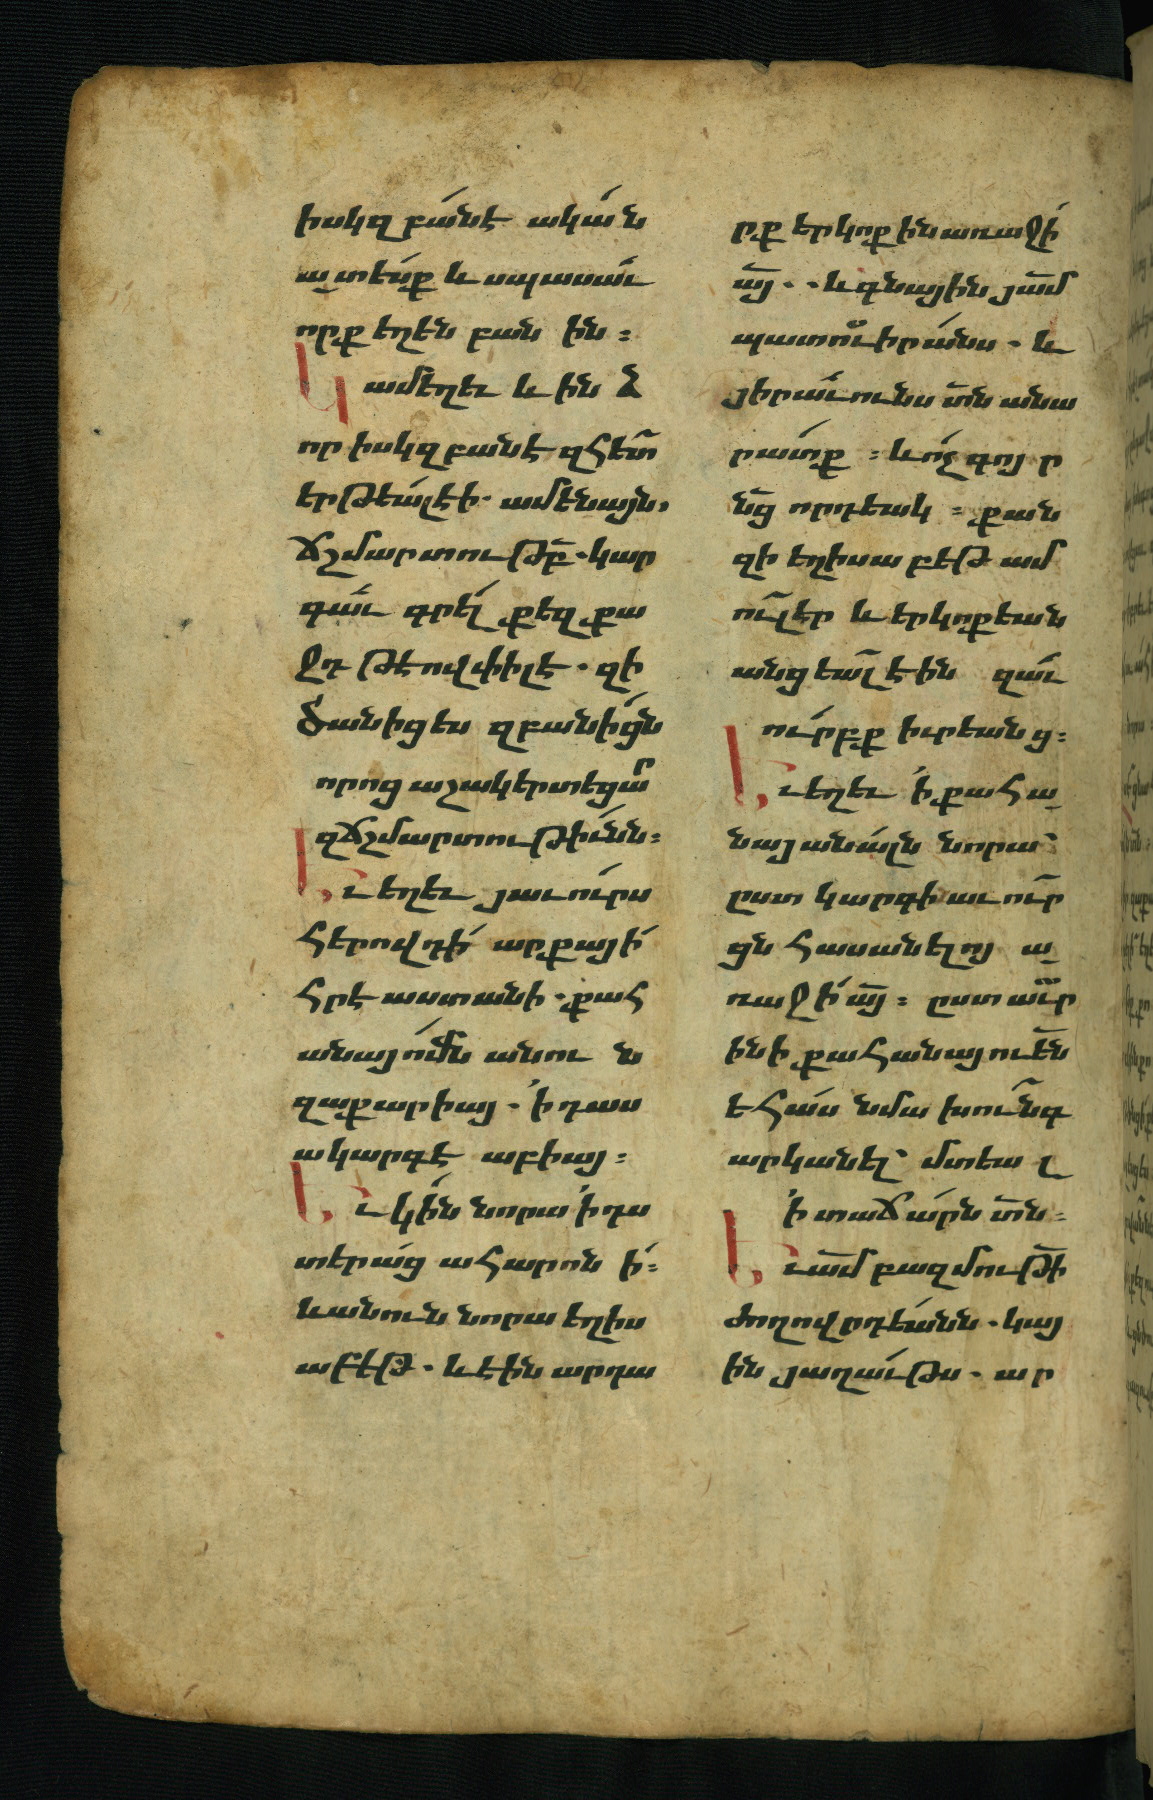 իսկզբանէ ական
ատեսք և սպասաւ
որք եղեն բան ին ։
Կամեղեւ և ինձ
որ իսկզբանէ զհետ
երթեալ էի· ամենայն·
ճշմարտութբ· կար
գաւ գրել քեզ քա
ջդ թէովփիլէ· զի
ծանիցես զբանիցն
որոց աշակերտեցար
զճշմարտութիւնն ։
Եւ եղեւ յաւուրս
հերովդի արքայի
հրէաստանի· քահ
անայ ոմն անուն
զաքարիայ· ՚ի դաս
ակարգէ աբիայ ։
Եւ կին նորա ՚ի դս
տերաց ահարոն ի ։
և անուն նորա եղիս
աբեթ· և էին արդա
րք երկոքին առաջի
այ· · և գնային յամ
պատուիրանս· և
յիրաւունս տն անա
րատք ։ և ոչ գոյր
նց որդեակ ։ քան
զի եղիսաբեթ ամ
ուլ էր և երկոքեան
անցեալ էին զաւ
ուրբք իւրեանց ։
Եւ եղեւ ՚ի քահա
նայանալն նորա՝
ըստ կարգի աւուր
ցն հասանելոյ ա
ռաջի այ ։ ըստ աւր
ինի քահանայուեն
եհաս նմա խունգ
արկանել՝ մտեալ
՚ի տաճարն տն ։
Եւ ամ բազմութի
ժողովրդեանն· կայ
ին յաղաւթս· ար